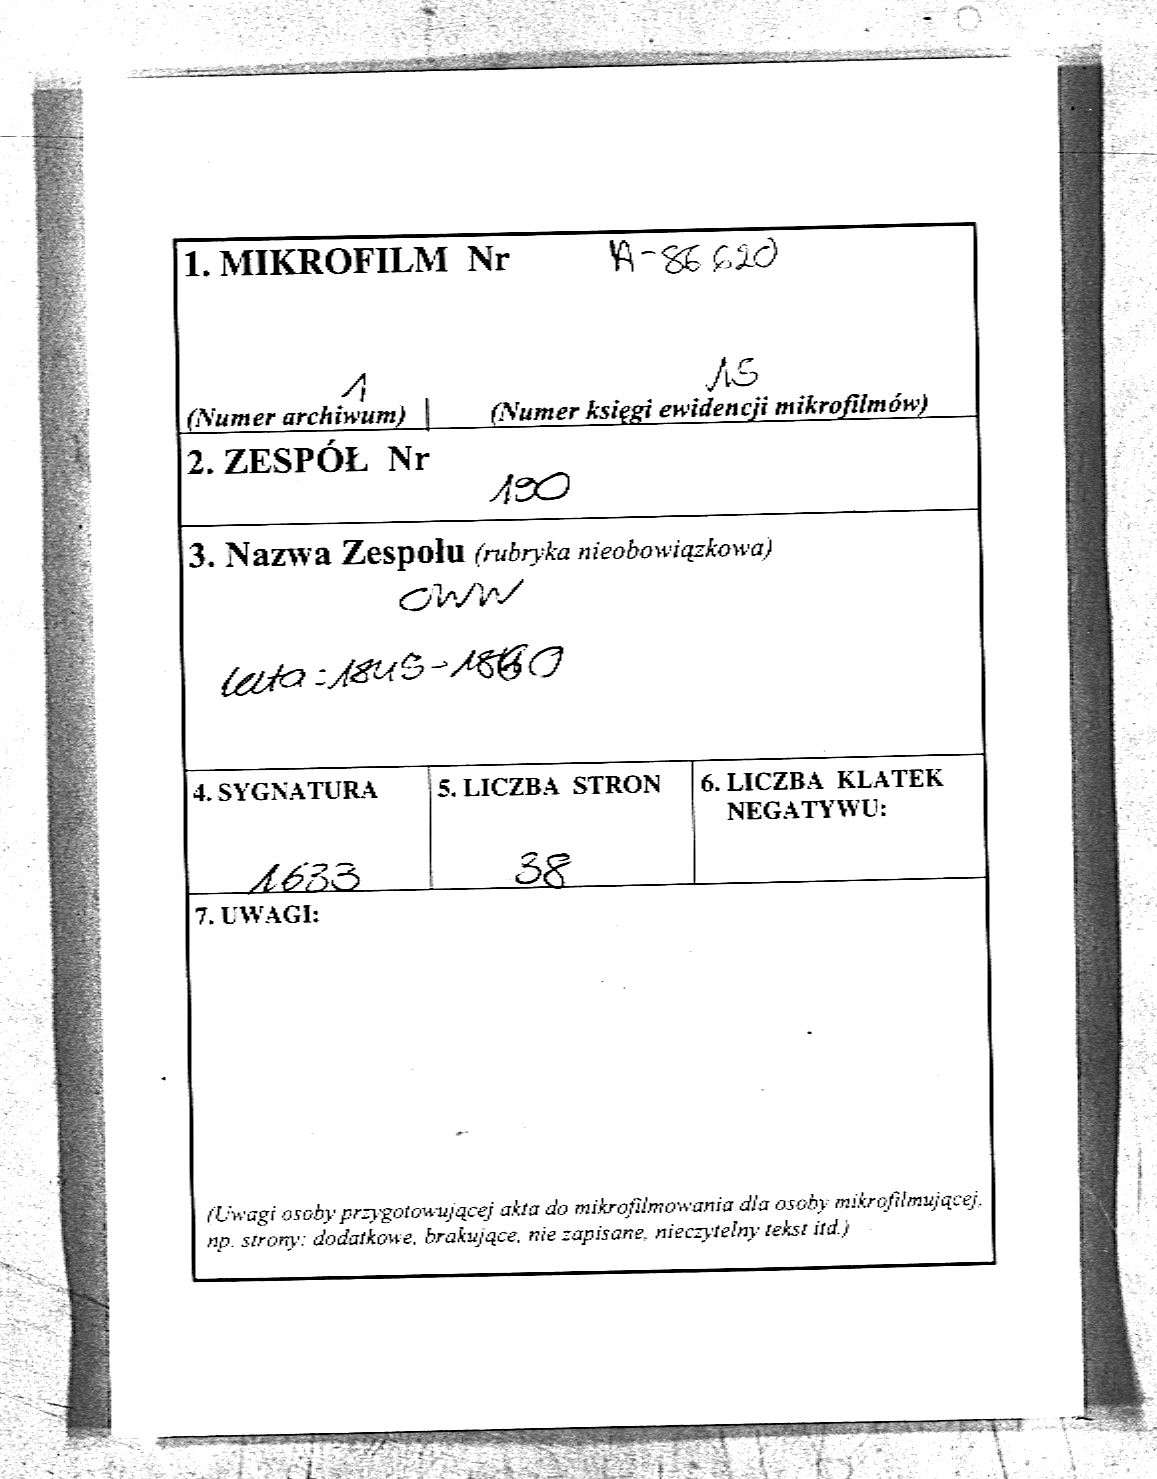 1. MIKROFILM Nr A-86620
1 15
(Numer archiwum) | (Numer księgi ewidencji mikrofilmów)
2. ZESPÓŁ Nr
190
3. Nazwa Zespołu (rubryka nieobowiązkowa)
OWW
lata: 1845-1860
4. SYGNATURA 5. LICZBA STRON 6. LICZBA KLATEK
NEGATYWU:
1633 38
7. UWAGI:
(Uwagi osoby przygotowującej akta do mikrofilmowania dla osoby mikrofilmującej,
np. strony: dodatkowe, brakujące, nie zapisane, nieczytelny tekst itd.)